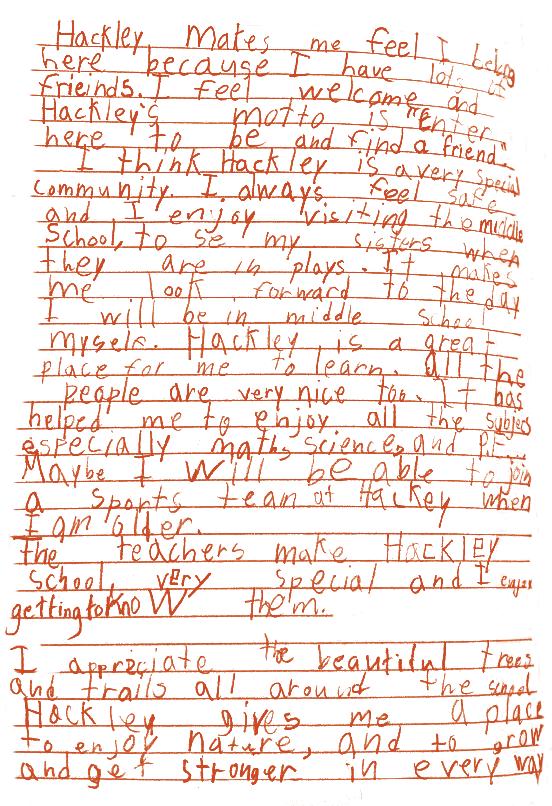 Hackley Makes me feel I belong
here because I have lots of
frieinds. I feel welcome and
Hackley's motto is "Enter
here to be and find a friend."
I think Hackley is a very special
community. I always feel safe
and I enjoy visiting the middle
School, to se my sisters when
they are in plays. It makes
me look forward to the day
I will be in middle school
myself. Hackley is a great
place for me to learn. all the
people are very nice too. It has
helped me to enjoy all the subjects
especially maths, science, and P.E...
Maybe I will be able to join
a Sports team at Hackey when
I am older.
the teachers make Hackley
school, very special and I enjoy
getting to know them.
I appreciate the beautiful trees
and trails all around the school
Hackley gives me a place
to enjoy nature, and to grow
and get stronger in every way